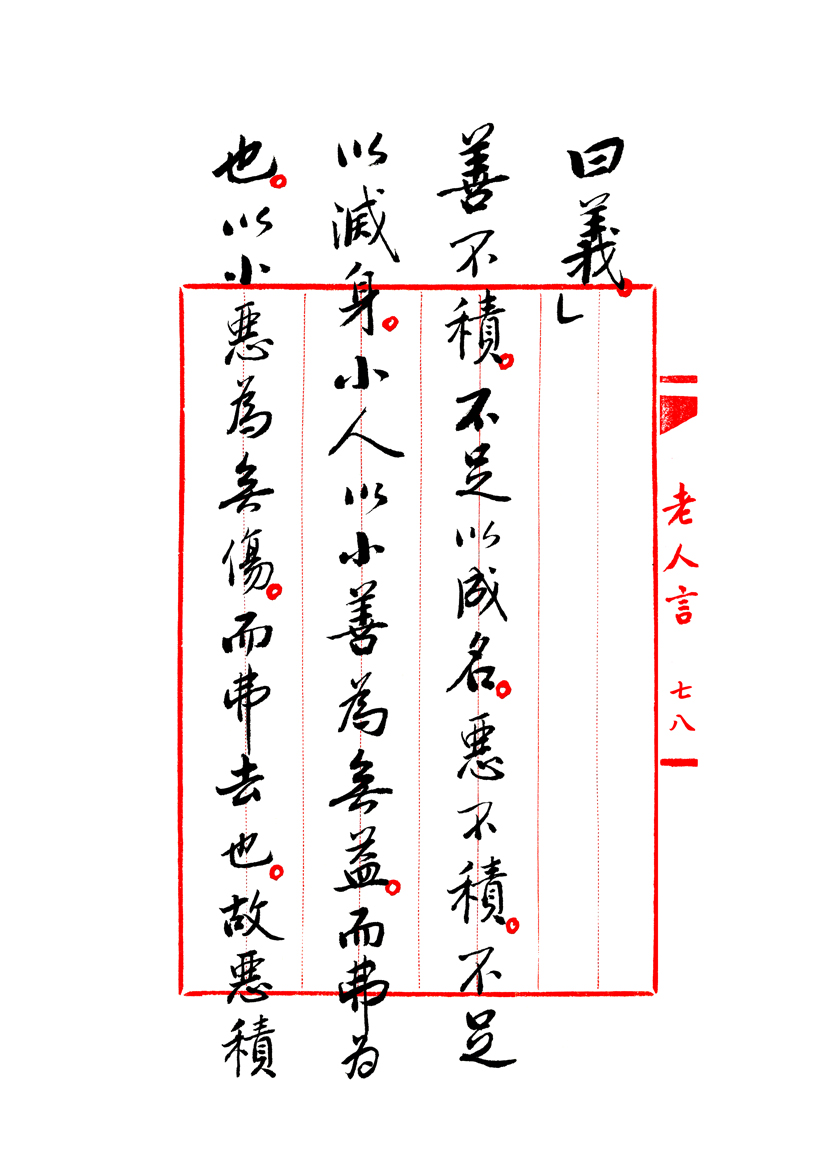 曰義。」
善不積。不足以成名。惡不積。不足
以滅身。小人以小善為無益。而弗為
也。以小惡為無傷。而弗去也。故惡積
老人言 七八